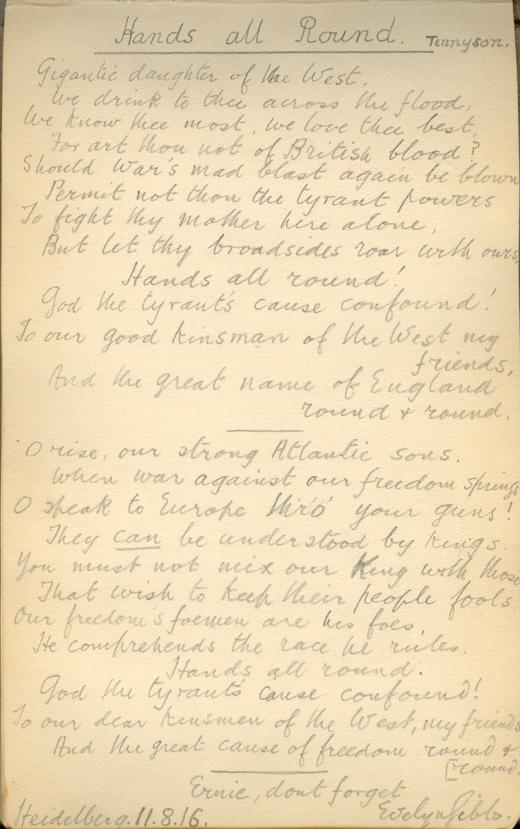 Hands all Round. Tennyson.
Gigantic daughter of the West,
We drink to thee across the flood,
We know thee most, we love thee best,
For art thou not of British blood?
Should War's mad blast again be blown
Permit not thou the tyrant powers
To fight thy mother here alone,
But let thy broadsides roar with ours,
Hands all round!
God the tyrant's cause confound!
To our good kinsman of the West my
friends,
And the great name of England
round & round.
O rise, our strong Atlantic sons.
When war against our freedom springs
O speak to Europe thro' your guns!
They can be understood by kings.
You must not mix our King with those
That wish to keep their people fools,
Our freedom's foemen are his foes,
He comprehends the race he rules.
Hands all round.
God the tyrant's cause confound!
To our dear kinsmen of the West, my friends
And the great cause of freedom round &
[round.
Ernie, dont forget
Heidelberg. 11.8.16. Evelyn Gibbs.